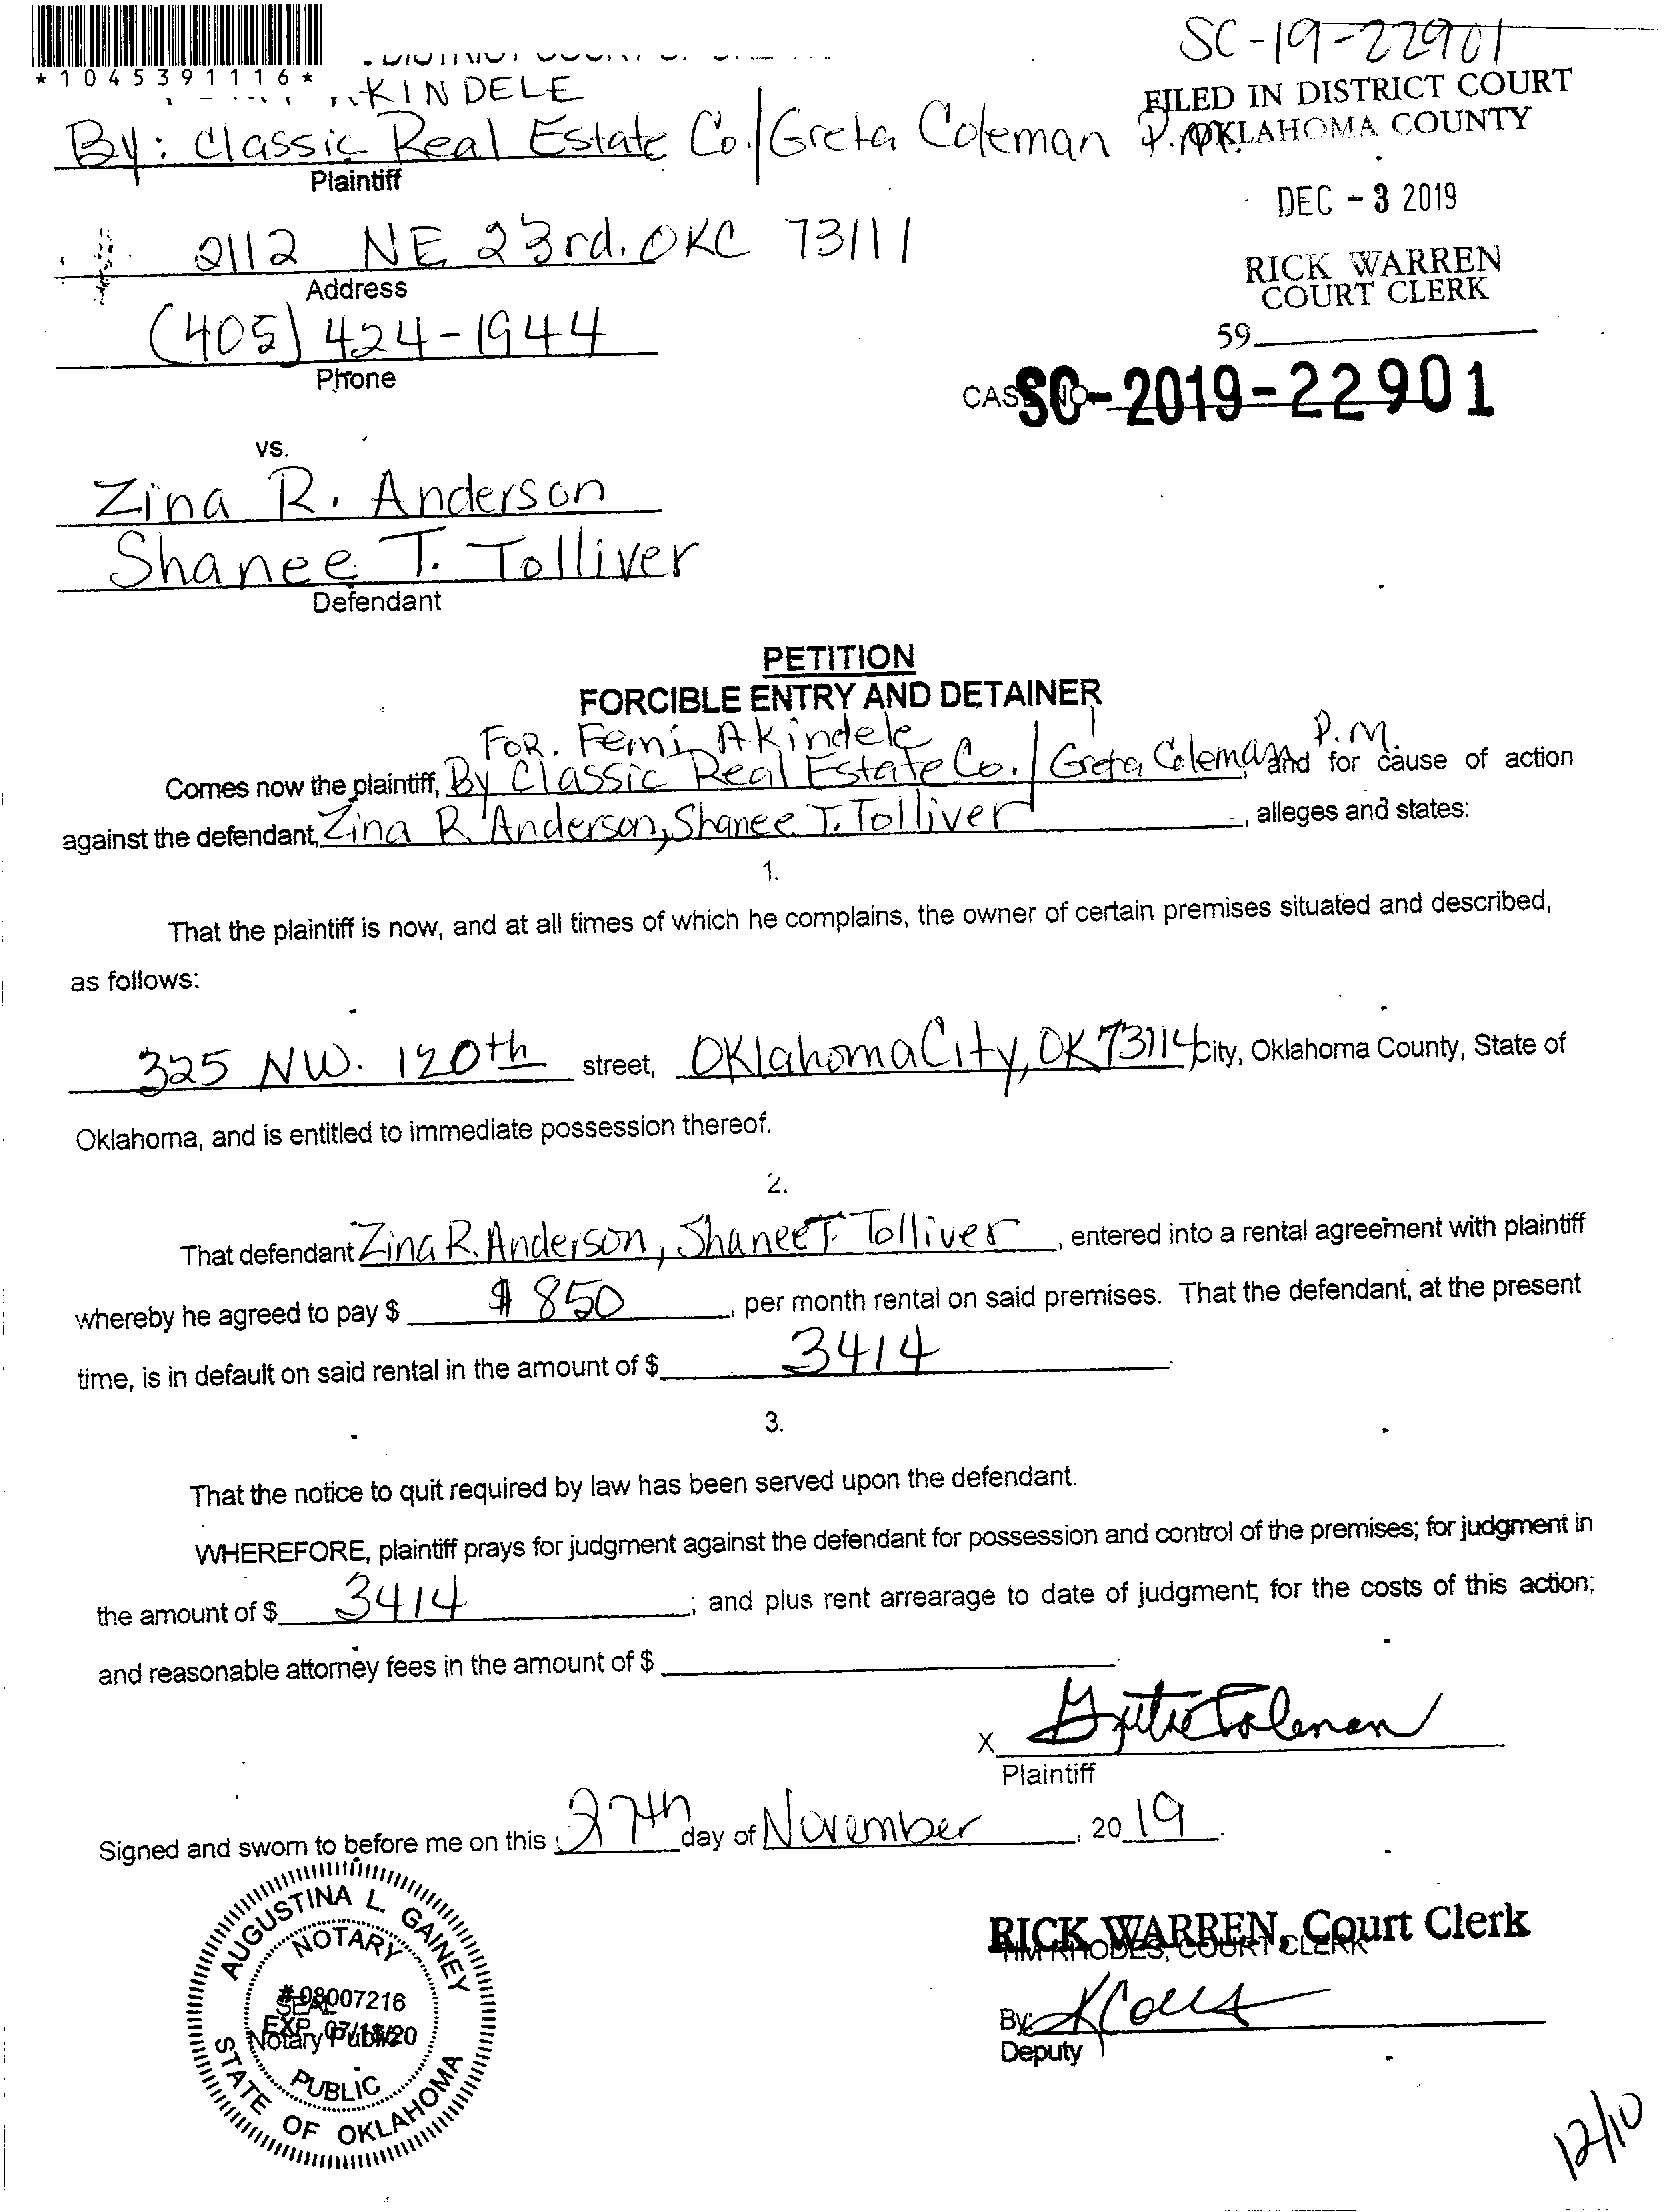 SC-19-22901
*1045391116*
KINDELE
FILED IN DISTRICT COURT
OKLAHOMA COUNTY
By: Classic Real Estate Co./Greta Coleman P.M.
Plaintiff
DEC - 3 2019
2112 NE 23rd. OKC 73111
Address
RICK WARREN
COURT CLERK
(405) 424-1944
Phone
59
CASE NO. SC-2019-22901
vs.
Zina R. Anderson
Shanee T. Tolliver
Defendant
PETITION
FORCIBLE ENTRY AND DETAINER
FOR. Femi Akindele P.M.
Comes now the plaintiff, By Classic Real Estate Co./ Greta Coleman and for cause of action
against the defendant, Zina R. Anderson, Shanee T. Tolliver, alleges and states:
1.
That the plaintiff is now, and at all times of which he complains, the owner of certain premises situated and described,
as follows:
325 NW. 120th street, Oklahoma City, OK 73114 City, Oklahoma County, State of
Oklahoma, and is entitled to immediate possession thereof.
2.
That defendant Zina R. Anderson, Shanee T. Tolliver, entered into a rental agreement with plaintiff
whereby he agreed to pay $ $ 850, per month rental on said premises. That the defendant, at the present
time, is in default on said rental in the amount of $ 3414.
3.
That the notice to quit required by law has been served upon the defendant.
WHEREFORE, plaintiff prays for judgment against the defendant for possession and control of the premises; for judgment in
the amount of $ 3414; and plus rent arrearage to date of judgment; for the costs of this action;
and reasonable attorney fees in the amount of $
x Greta Coleman
Plaintiff
Signed and sworn to before me on this 27th day of November, 20 19.
AUGUSTINA L. GAINEY
NOTARY
# 08007216
SEAL
EXP. 07/18/20
Notary Public
PUBLIC
STATE OF OKLAHOMA
RICK WARREN, Court Clerk
TIM RHODES, COURT CLERK
By
Deputy
12/10